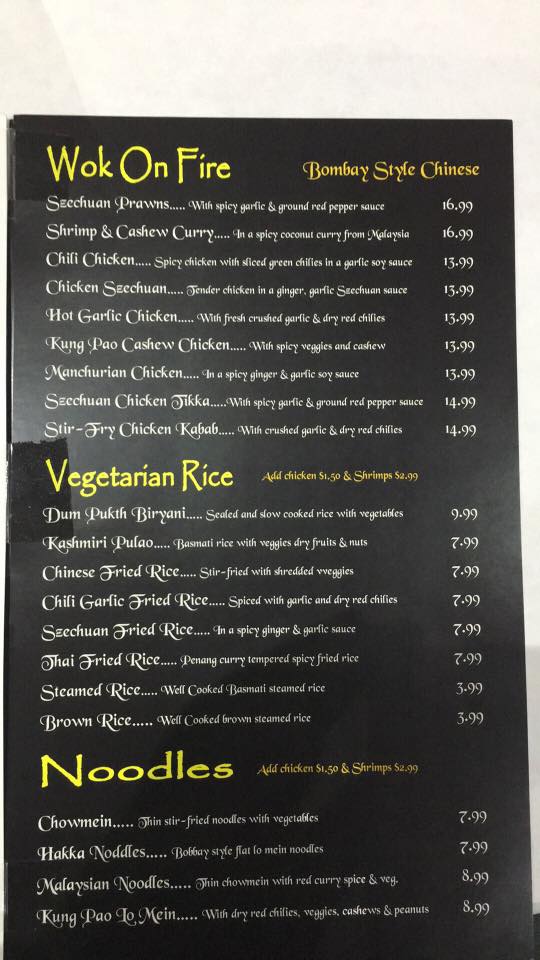 Wok On Fire Bombay Style Chinese
Szechuan Prawns..... With spicy garlic & ground red pepper sauce 16.99
Shrimp & Cashew Curry.... In a spicy coconut curry from Malaysia 16.99
Chili Chicken..... Spicy chicken with sliced green chilies in a garlic soy sauce 13.99
Chicken Szechuan..... Tender chicken in a ginger, garlic Szechuan sauce 13.99
Hot Garlic Chicken..... With fresh crushed garlic & dry red chilies 13.99
Kung Pao Cashew Chicken..... With spicy veggies and cashew 13.99
Manchurian Chicken..... In a spicy ginger & garlic soy sauce 13.99
Szechuan Chicken Tikka.....With spicy garlic & ground red pepper sauce 14.99
Stir-Fry Chicken Kabab..... With crushed garlic & dry red chilies 14.99
Vegetarian Rice Add chicken $1.50 & Shrimps $2.99
Dum Pukth Biryani..... Sealed and slow cooked rice with vegetables 9.99
Kashmiri Pulao..... Basmati rice with veggies dry fruits & nuts 7.99
Chinese Fried Rice..... Stir-fried with shredded vveggies 7.99
Chili Garlic Fried Rice..... Spiced with garlic and dry red chilies 7.99
Szechuan Fried Rice..... In a spicy ginger & garlic sauce 7.99
Thai Fried Rice..... Penang curry tempered spicy fried rice 7.99
Steamed Rice..... Well Cooked Basmati steamed rice 3.99
Brown Rice..... Well Cooked brown steamed rice 3.99
Noodles Add chicken $1.50 & Shrimps $2.99
Chowmein..... Thin stir-fried noodles with vegetables 7.99
Hakka Noddles..... Bobbay style flat lo mein noodles 7.99
Malaysian Noodles..... Thin chowmein with red curry spice & veg. 8.99
Kung Pao Lo Mein..... With dry red chilies, veggies, cashews & peanuts 8.99